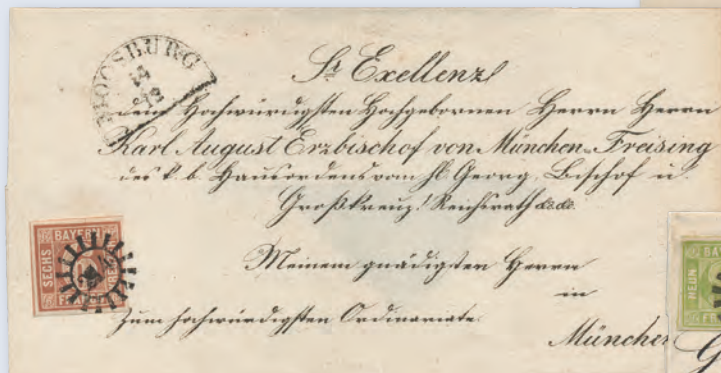 MOOSBURG
Sr. Exellenz
dem Hochwürdigsten Hochgebornen Herrn Herrn
Karl August Erzbischof von München-Freising
des k. b. Hausordens vom hl. Georg, Bischof u.
Großkreuz! Reichsrath &c. &c.
BAYERN
SECHS
Meinem gnädigsten Herrn
in
Zum hochwürdigsten Ordinariate.
Münche
BA
NEUN
FR
G